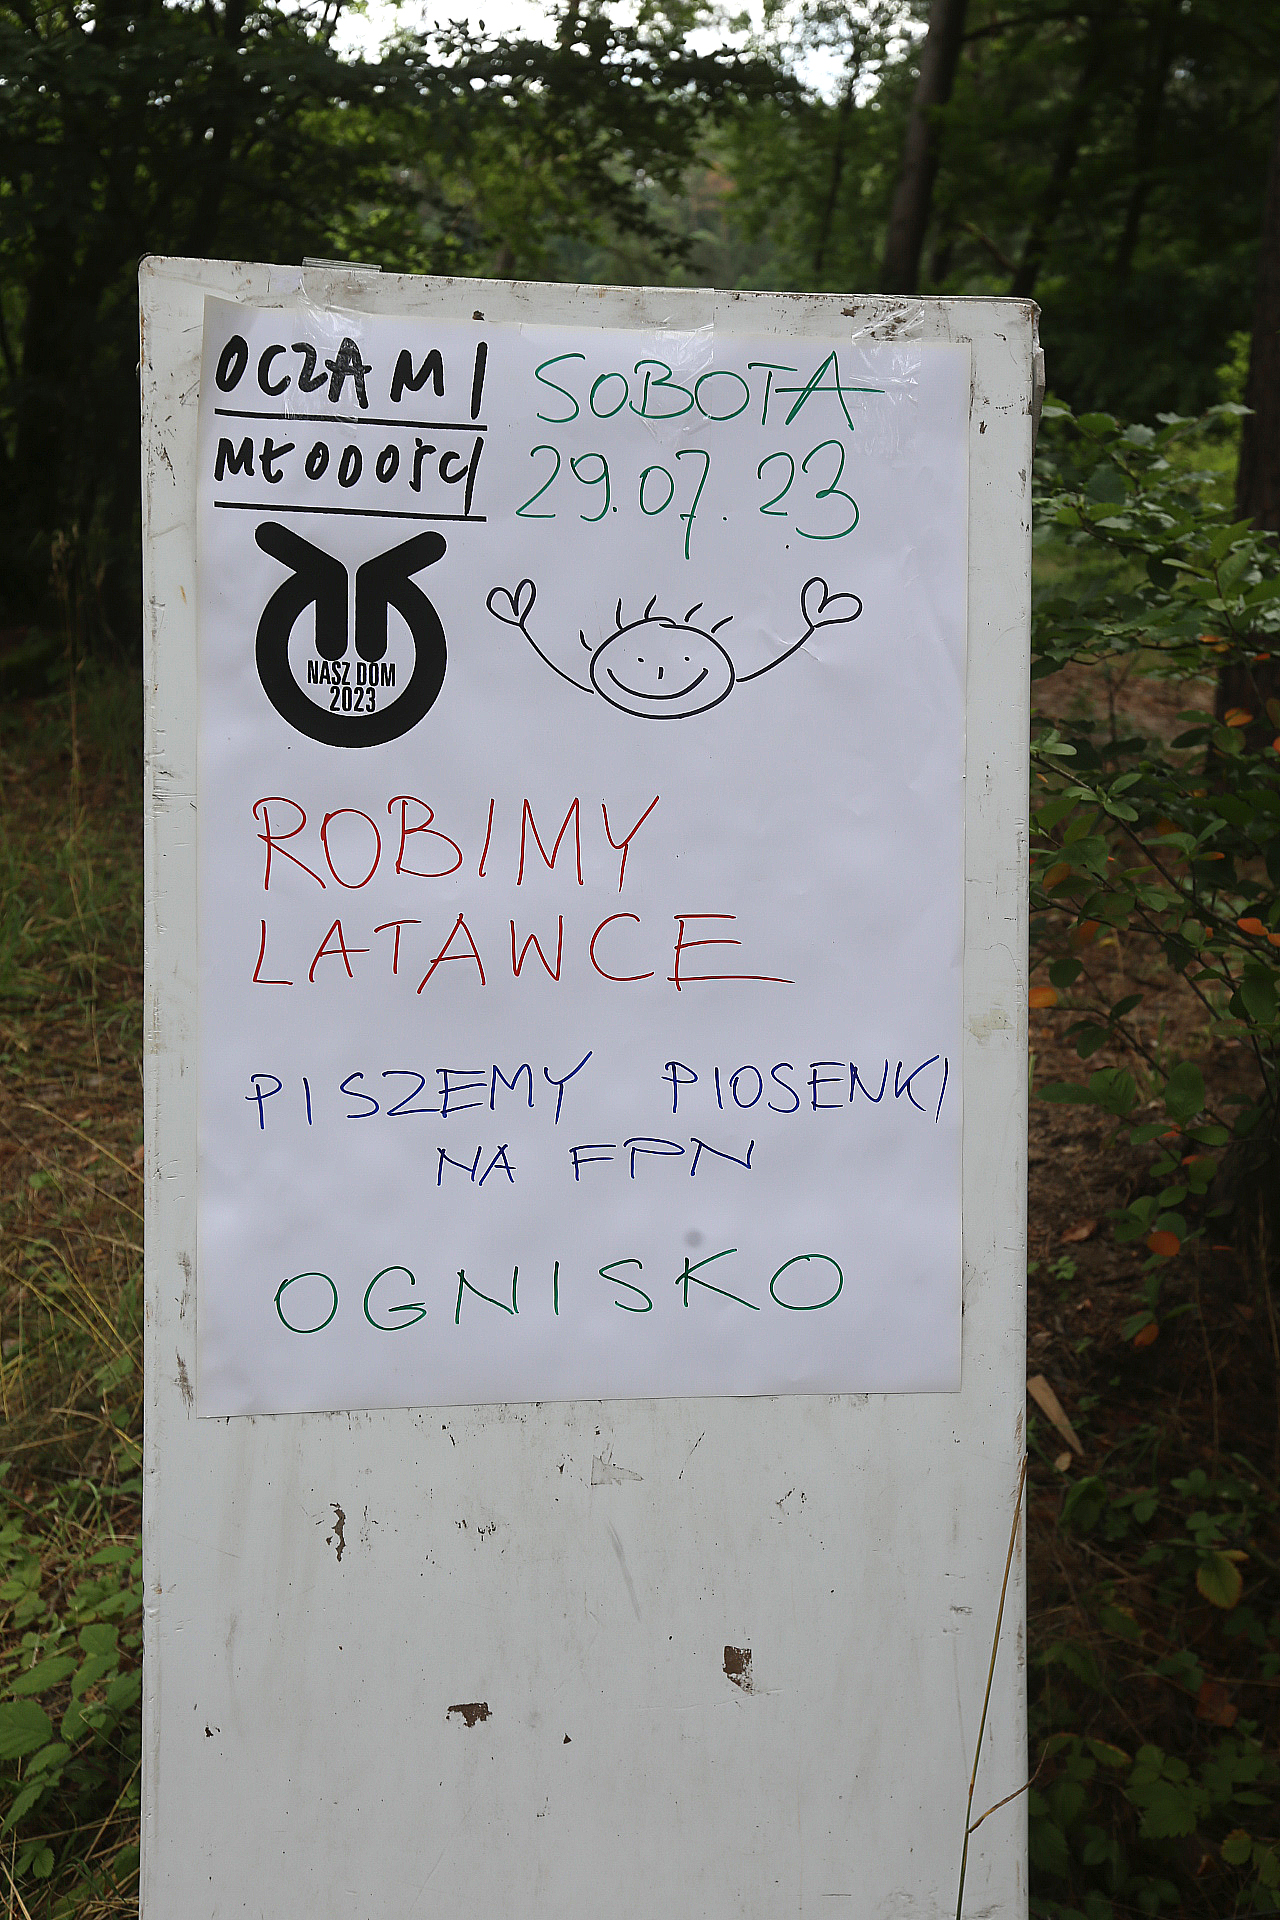 OCZAMI
MŁODOŚCI
SOBOTA
29.07.23
NASZ DOM
2023
ROBIMY
LATAWCE
PISZEMY PIOSENKI
NA FPN
OGNISKO